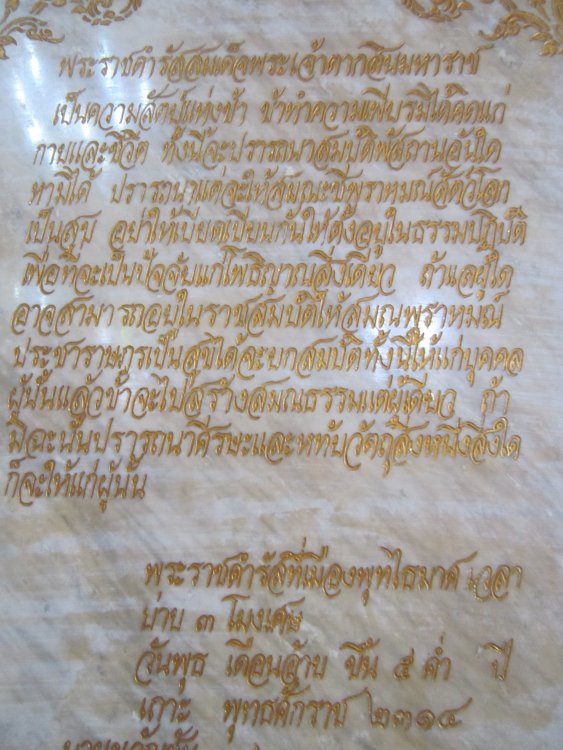 พระราชดำรัสสมเด็จพระเจ้าตากสินมหาราช
เป็นความสัตย์แห่งข้า ข้าทำความเพียรมิได้คิดแก่
กายและชีวิต ทั้งนี้จะปรารถนาสมบัติพัสถานอันใด
หามิได้ ปรารถนาแต่จะให้สมณะชีพราหมณ์สัตว์โลก
เป็นสุข อย่าให้เบียดเบียนกันให้ตั้งอยู่ในธรรมปฏิบัติ
เพื่อที่จะเป็นปัจจัยแก่โพธิญาณสิ่งเดียว ถ้าและผู้ใด
อาจสามารถอยู่ในราชสมบัติให้สมณพราหมณ์
ประชาราษฎรเป็นสุขได้จะยกสมบัติทั้งนี้ให้แก่บุคคล
ผู้นั้นแล้วข้าจะไปสร้างสมณธรรมแต่ผู้เดียว ถ้า
มิฉะนั้นปรารถนาศีรษะและหทัยวัตถุสิ่งหนึ่งสิ่งใด
ก็จะให้แก่ผู้นั้น
พระราชดำรัสที่เมืองพุทไธมาศ เวลา
บ่าย ๓ โมงเศษ
วันพุธ เดือนอ้าย ขึ้น ๕ ค่ำ ปี
เถาะ พุทธศักราช ๒๓๑๔